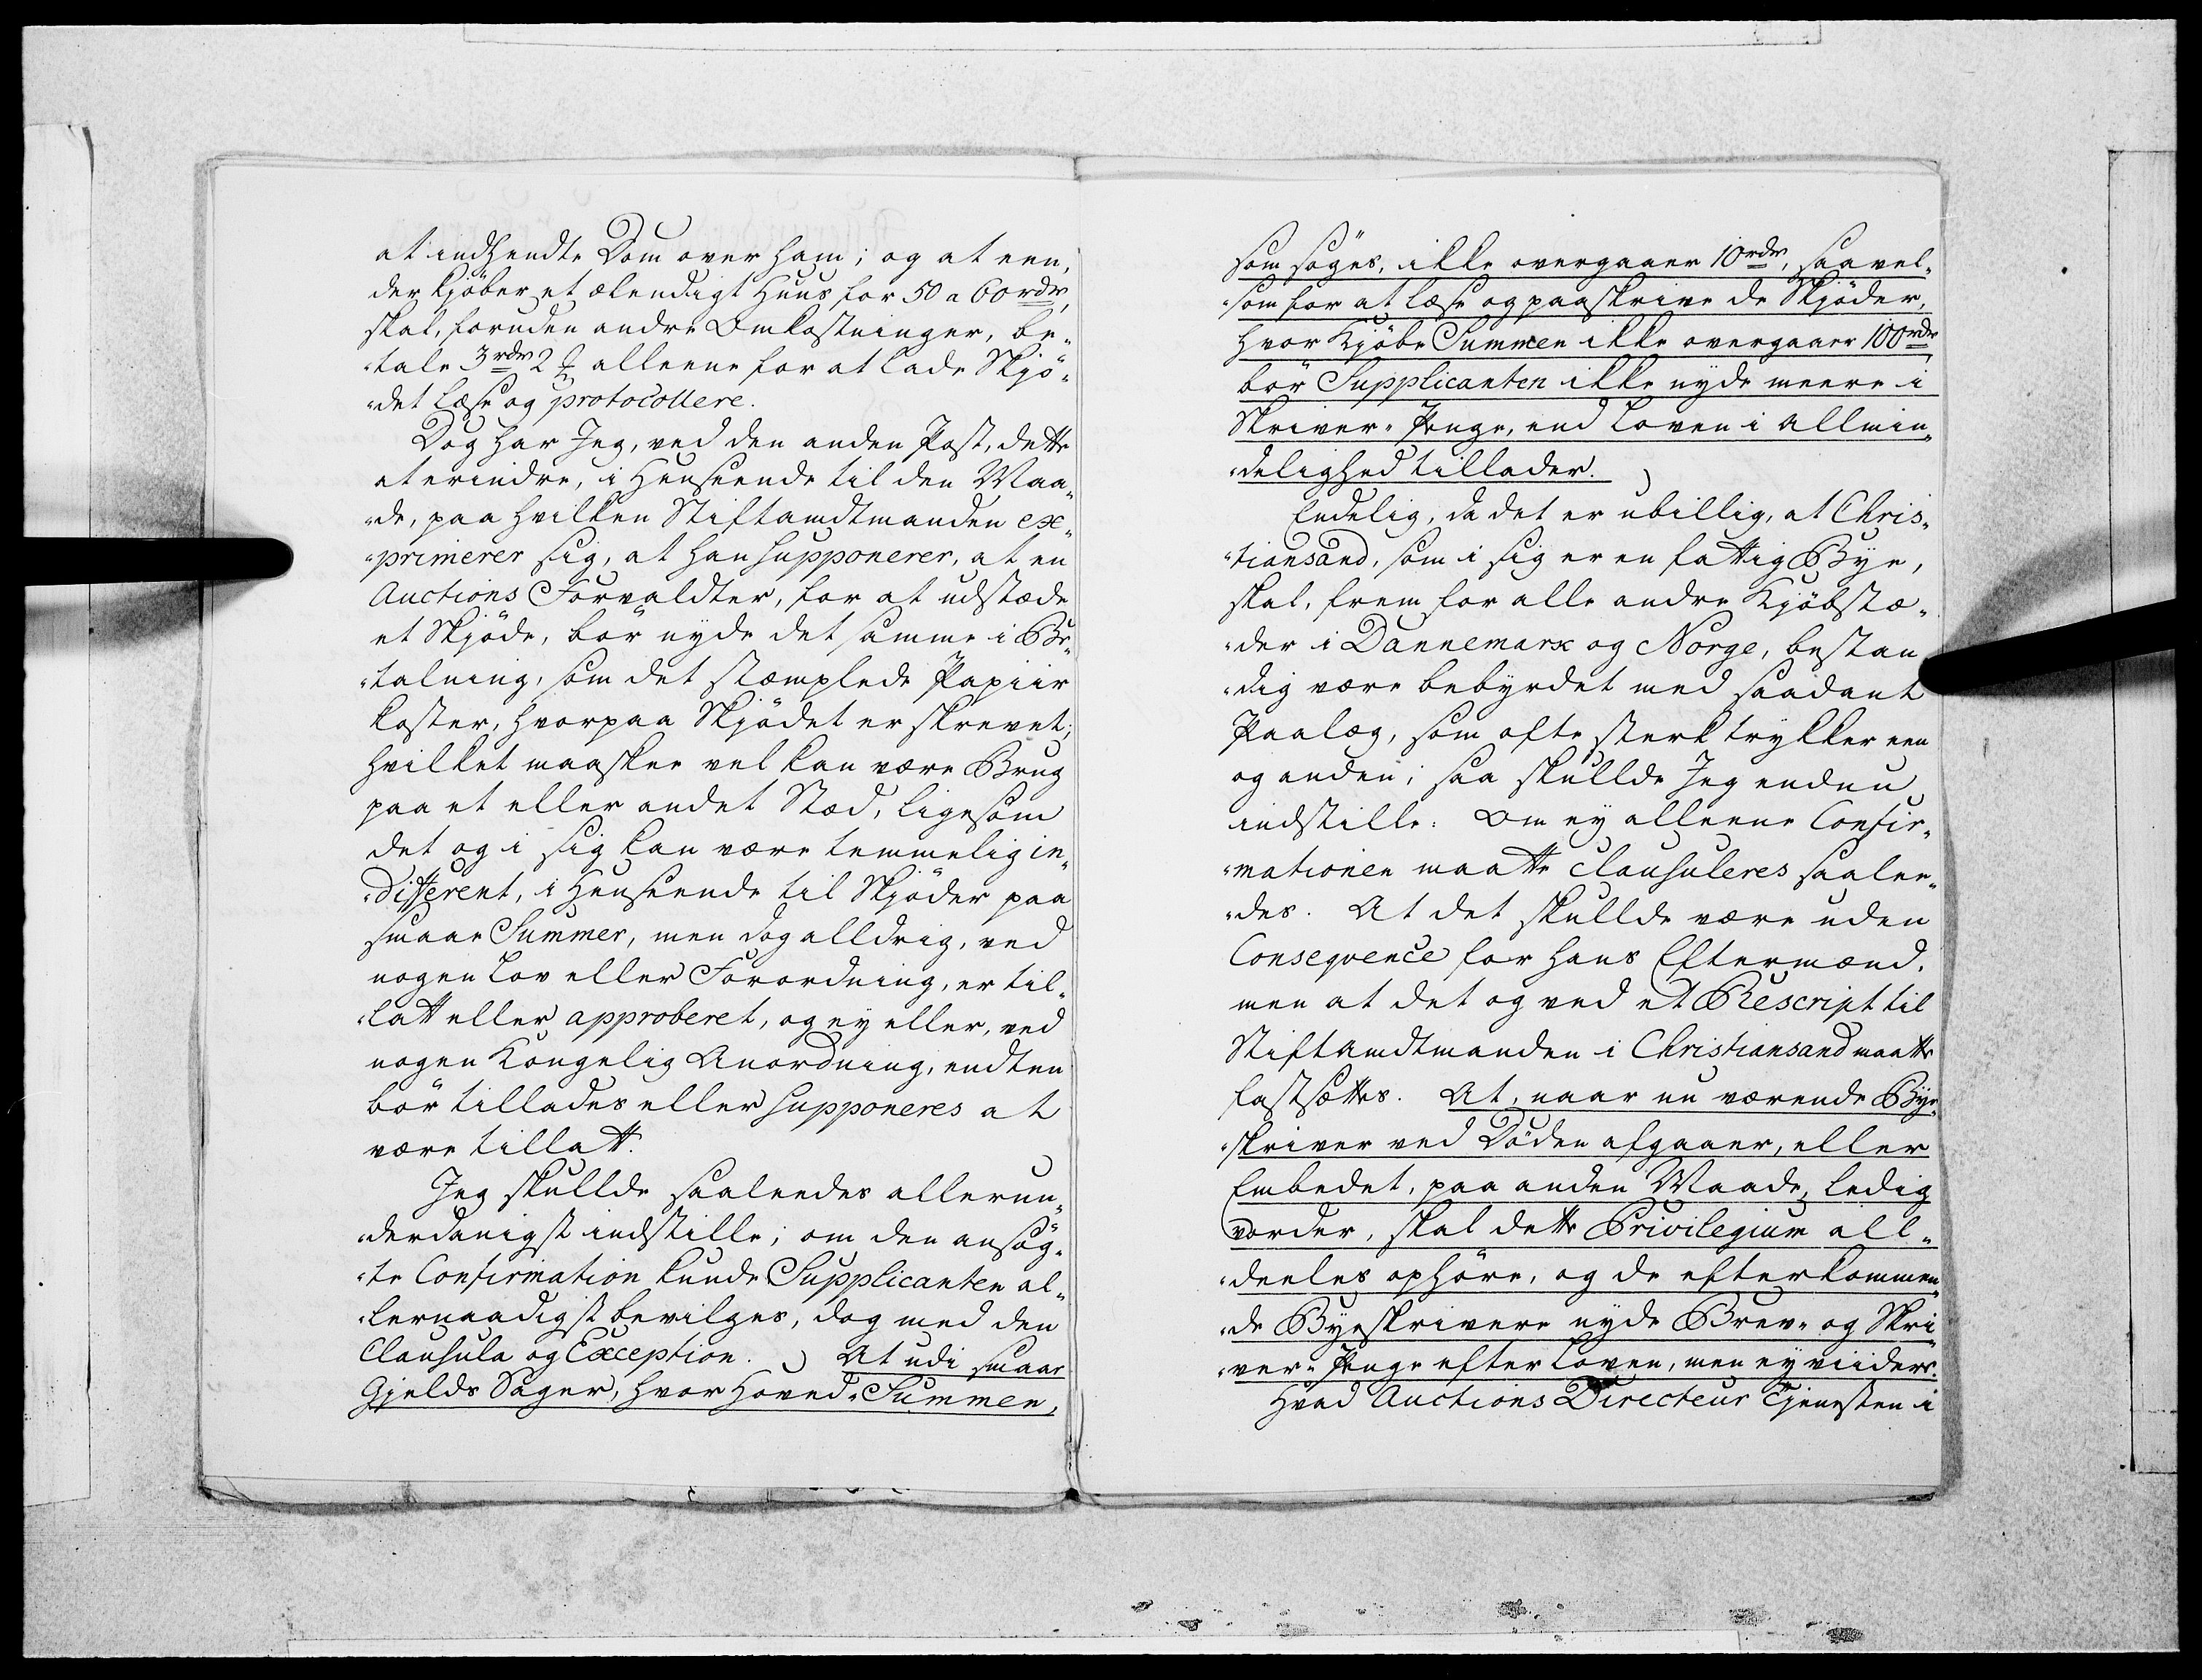 at indhendte Dom over ham; og at een,
der kjöber et ælendigt Huus for 50 a 60 rdr,
skal, foruden andre Omkostninger, be-
-tale 3 rdr 2 ß alleene for at lade Skjö-
-det læse og protocollere.
Dog har Jeg, ved den anden Post, dette
at erindre, i Henseende til den Maa-
-de, paa hvilken Stiftamdtmanden ex-
-primerer sig, at han supponerer, at en
Auctions Forvaldter, for at udstæde
et Skjöde, bör nyde det samme i Be-
-talning, som det stæmplede Papiir
koster, hvorpaa Skjödet er skrevet;
hvilket maaskee vel kan være Brug
paa et eller andet Stæd, ligesom
det og i sig kan være temmelig in-
-different, i Henseende til Skjöder paa
smaae Summer, men dog alldrig, ved
nogen Lov eller Forordning, er til-
-latt eller approberet, og ey eller, ved
nogen Kongelig Anordning, endten
bör tillades eller supponeres at
være tillatt.
Jeg skullde saaleedes allerun-
-derdanigst indstille; om den ansög-
-te Confirmation kunde Supplicanten al-
-lernaadigst bevilges, dog med den
Clausula og Exception. At udi smaae
Gjelds Sager, hvor Hoved-Summen,
som söges, ikke overgaaer 10 rdr, saavel-
-som for at læse og paaskrive de Skjöder,
hvor Kjöbe Summen ikke overgaaer 100 rdr,
bör Supplicanten ikke nyde meere i
Skriver-Penge, end Loven i Allmin-
-delighed tillader.
Endelig, da det er ubillig, at Chris-
-tiansand, som i sig er en fattig Bye,
skal, frem for alle andre Kjöbstæ-
-der i Dannemark og Norge, bestan
-dig være bebyrdet med saadant
Paalæg, som ofte sterk trykker een
og anden; saa skullde Jeg endnu
indstille: Om ey alleene Confir-
-mationen maatte clausuleres saalee-
-des. At det skullde være uden
Conseqvence for hans Eftermænd,
men at det og ved et Rescript til
Stiftamdtmanden i Christiansand maatte
fastsættes. At, naar nu værende Bye-
-skriver ved Döden afgaaer, eller
Embedet, paa anden Maade, ledig
vorder, skal dette Privilegium all-
-deeles ophöre, og de efterkommen-
-de Byeskrivere nyde Brev- og Skri-
-ver-Penge efter Loven, men ey viidere.
Hvad Auctions Directeur Tjenesten i